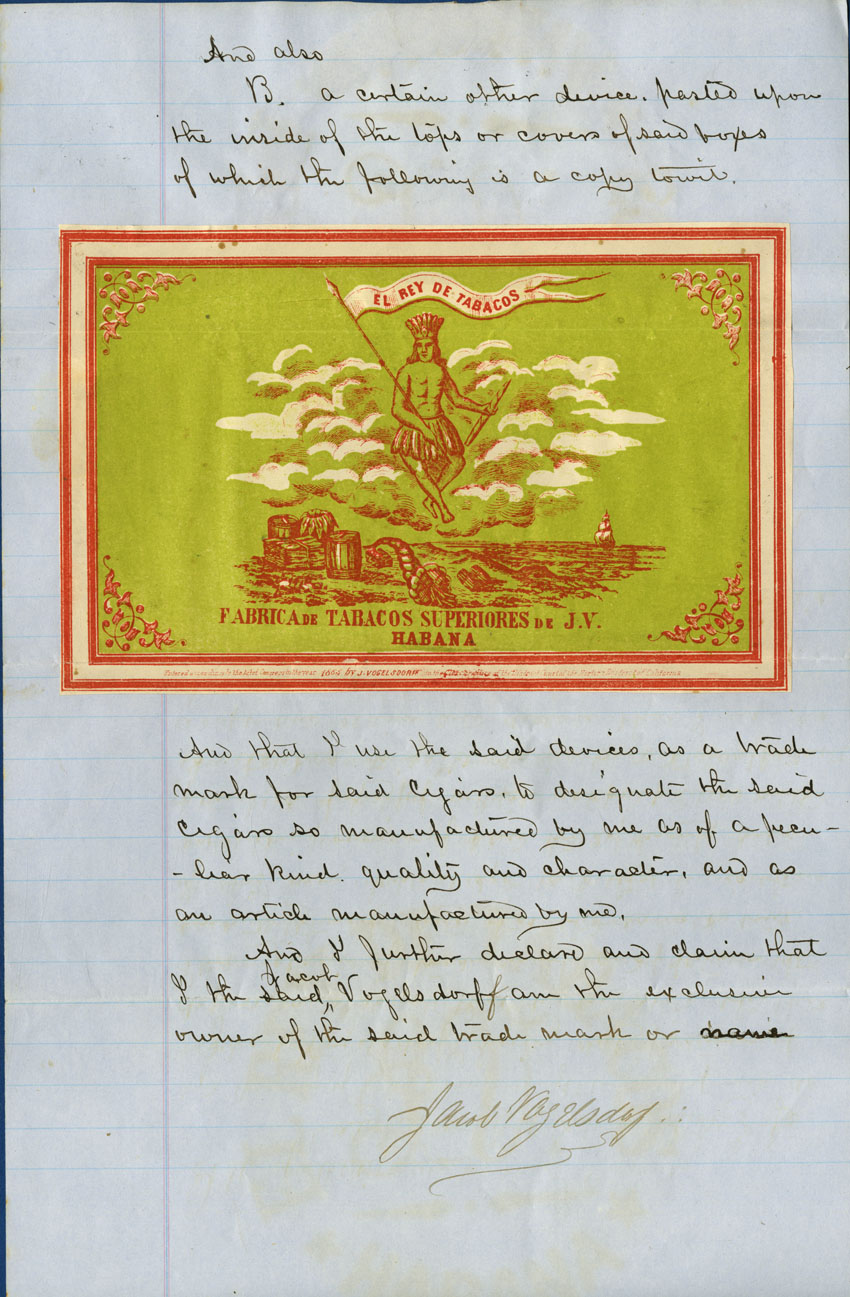 And also
B. a certain other device. pasted upon
the inside of the tops or covers of said boxes
of which the following is a copy towit.
EL REY DE TABACOS
FABRICA DE TABACOS SUPERIORES DE J.V.
HABANA
Entered according to the Act of Congress in the year 1864 by J. VOGELSDORFF in the of the District Court of the Northern District of California
And that I use the said devices, as a trade
mark for said Cigars, to designate the said
Cigars so manufactured by me as of a pecu-
-liar kind. quality and character, and as
an article manufactured by me.
And I further declare and claim that
I the said Jacob Vogelsdorff am the exclusive
owner of the said trade mark or name
Jacob Vogelsdorff